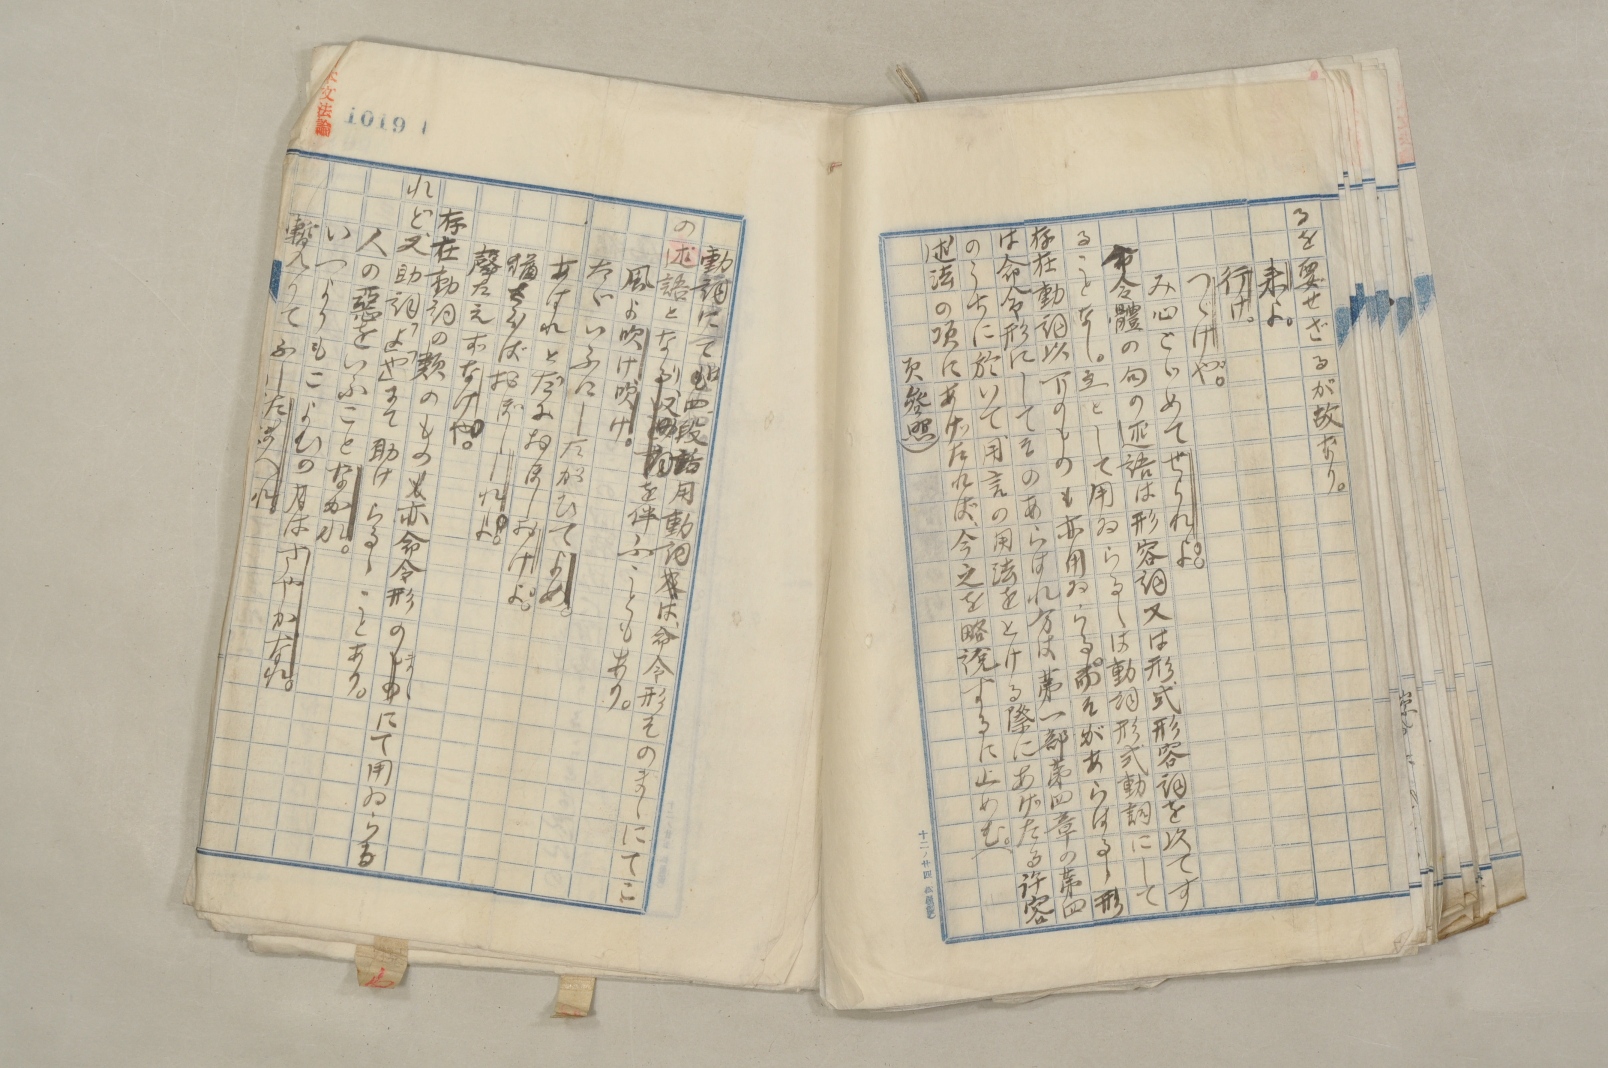 るを要せざるが故なり。
来よ。
行け。
つゞけや。
み心とゞめてせられよ。
命令體の句の述語は形容詞又は形式形容詞を以てす
ることなし。主として用ゐらるゝは動詞形式動詞にして
存在動詞以下のものも亦用ゐらる。而そがあらはるゝ形
は命令形にしてそのあらはれ方は第一部第四章の第四
のうちに於いて用言の用法をとける際にあげたる許容
述法の項にあげたれば今之を略説するに止めむ。
頁参照)
十二ノ廿四
本文法論
10191
動詞にては四段活用動詞は命令形そのまゝにてこ
の述語となり又を伴ふこともあり。
風よ吹け吹け。
たゞいふにしたがひてよめ。
あはれとだにおぼしおけよ。
猶さらばおぼししれよ。
聲たえずなけや。
存在動詞の類のものも亦命令形のまゝにて用ゐらる
れど又助詞「よ」「や」にて助けらるゝことあり。
人の惡をいふことなかれ。
いつよりもこよひの月はさやかなれ。
暫入りてふしたまへれ。